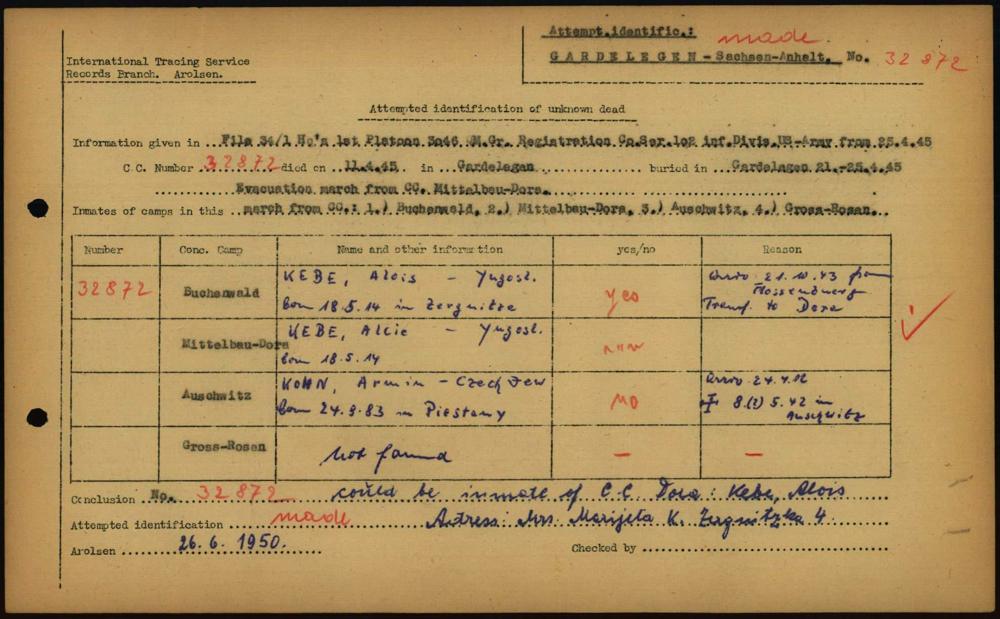 Attempt.identific.: made
International Tracing Service
Records Branch. Arolsen.
GARDELEGEN - Sachsen-Anhalt. No. 32 872
Attempted identification of unknown dead
Information given in ..File 34/1 Hq's 1st Platoon 3046 QM.Gr. Registration Co.Ser.102 inf.Divis.US-Army from 25.4.45
C.C. Number .32872. died on ...11.4.45... in ...Gardelegen... buried in ...Gardelegen 21.-25.4.45
Evacuation march from CC. Mittelbau-Dora.
Inmates of camps in this ..march from CC.: 1.) Buchenwald, 2.) Mittelbau-Dora, 3.) Auschwitz, 4.) Gross-Rosen.
Number Conc. Camp Name and other information yes/no Reason
32872 Buchenwald KEBE, Alois - Yugosl. born 18.5.14 in Zergnitze yes Arriv. 21.10.43 from Flossenbuerg Transf. to Dora
Mittelbau-Dora KEBE, Alcie - Yugosl. born 18.5.14
Auschwitz KOHN, Armin - Czech Jew born 24.9.83 in Piestany no Arriv. 24.4.42 8.(?) 5.42 in Auschwitz
Gross-Rosen not found - -
Conclusion No. 32872 could be inmate of C.C. Dora: Kebe, Alois
Attempted identification made Adress: Mrs. Marijeta K. Zergnitzka 4.
Arolsen 26.6.1950. Checked by